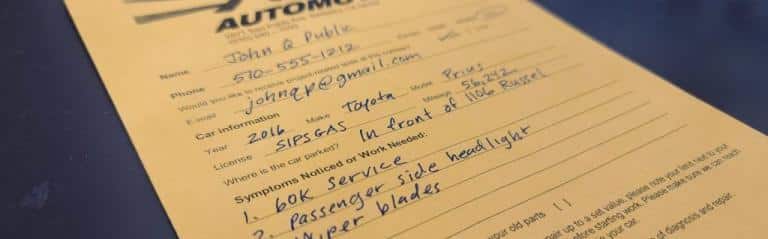 AUTOMO
Name John Q Public
Phone 510-555-1212
Would you like to receive project-related texts at this number?
E-mail johnqp@gmail.com
Car Information
Year 2016 Make Toyota Model Prius
License SIPSGAS Mileage 56,242
Where is the car parked? In front of 1106 Russel
Symptoms Noticed or Work Needed:
1. 60K service
2. Passenger side headlight
Wiper blades
your old parts
air up to a set value, please note your limit next to your
before starting work. Please make sure we can reach
of diagnosis and repair.
your car.